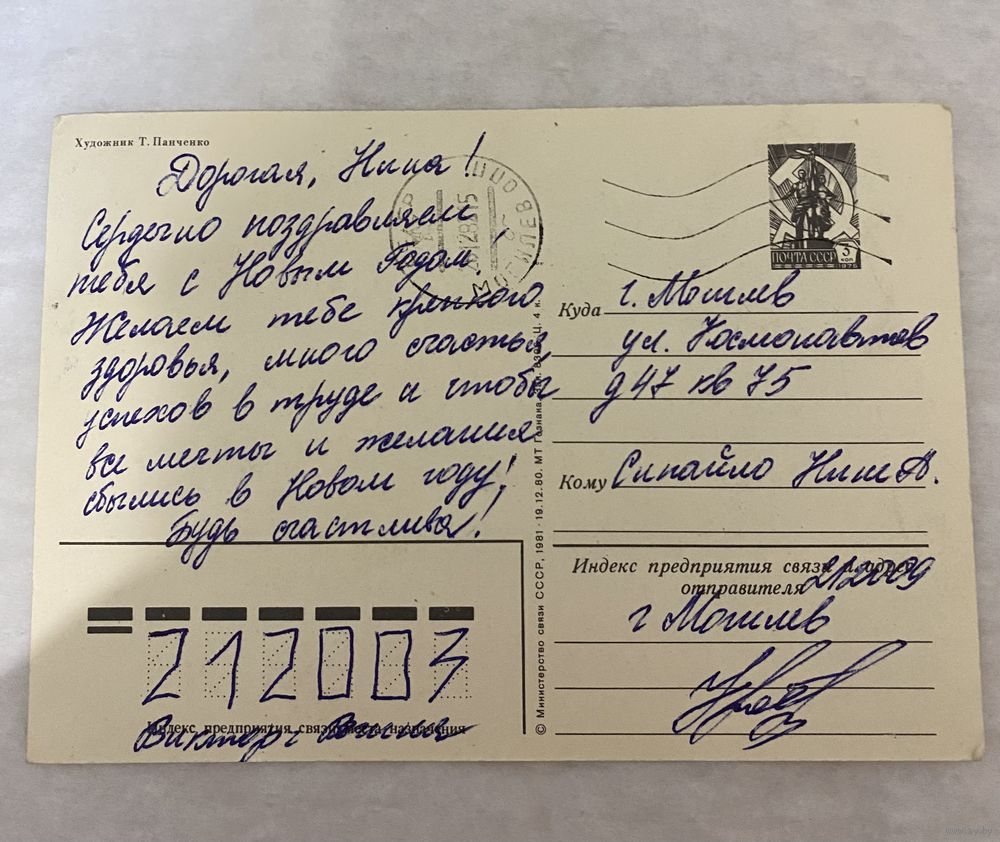 Художник Т. Панченко
Дорогая, Нина!
Сердечно поздравляем
тебя с Новым Годом!
Желаем тебе крепкого
здоровья, много счастья,
успехов в труде и чтобы
все мечты и желания
сбылись в Новом году!
Будь счастлива!
212003
Индекс предприятия связи места назначения
Виктор
ПОЧТА СССР
3 коп
1976
Куда г. Могилев
ул. Космонавтов
д 47 кв 75
Кому Сипайло Нине А.
Индекс предприятия связи и адрес
отправителя 212009
г Могилев
© Министерство связи СССР, 1981 · 19.12.80. МТ Гознака. Ц. 4 к.